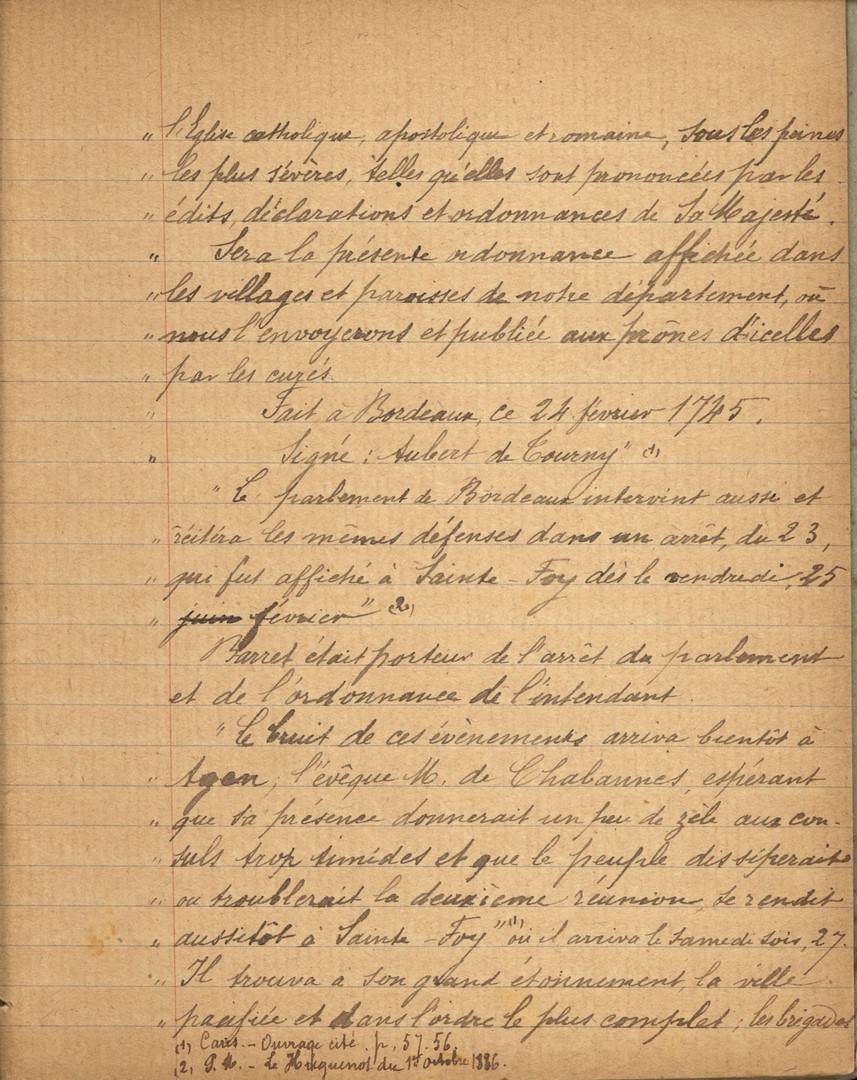 „ l'Eglise catholique, apostolique et romaine, sous les peines
„ les plus sévères, telles qu'elles sont prononcées par les
„ édits, déclarations et ordonnances de Sa Majesté.
„ Sera la présente ordonnance affichée dans
„ les villages et paroisses de notre département, où
„ nous l'envoyerons et publiée aux prônes d'icelles
„ par les curés.
„ Fait à Bordeaux, ce 24 février 1745.
„ Signé : Aubert de Tourny" (1)
" Le parlement de Bordeaux intervint aussi et
„ réitéra les mêmes défenses dans un arrêt, du 23,
„ qui fut affiché à Sainte-Foy dès le vendredi, 25
„ juin février" (2)
Barret était porteur de l'arrêt du parlement
et de l'ordonnance de l'intendant.
" Le bruit de ces évènements arriva bientôt à
„ Agen ; l'évêque M. de Chabannes, espérant
„ que sa présence donnerait un peu de zèle aux con-
„ suls trop timides et que le peuple dissiperait
„ ou troublerait la deuxième réunion, se rendit
„ aussitôt à Sainte-Foy" (1) où il arriva le samedi soir, 27.
„ Il trouva à son grand étonnement, la ville
„ pacifiée et dans l'ordre le plus complet ; les brigades
(1) - Ouvrage cité. p. 57. 56.
(2) P. M. - Le Huguenot du 1er octobre 1886.